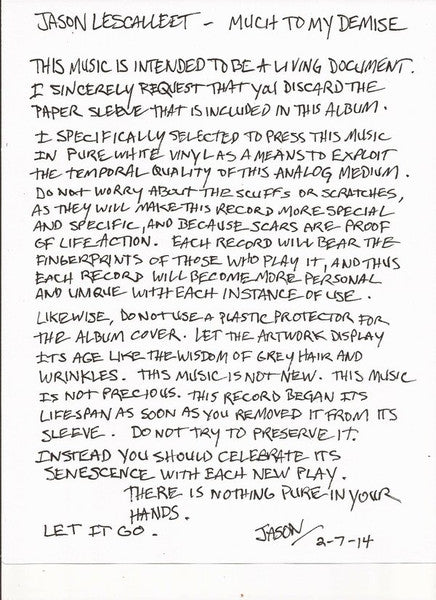 JASON LESCALLEET - MUCH TO MY DEMISE
THIS MUSIC IS INTENDED TO BE A LIVING DOCUMENT.
I SINCERELY REQUEST THAT YOU DISCARD THE
PAPER SLEEVE THAT IS INCLUDED IN THIS ALBUM.
I SPECIFICALLY SELECTED TO PRESS THIS MUSIC
IN PURE WHITE VINYL AS A MEANS TO EXPLOIT
THE TEMPORAL QUALITY OF THIS ANALOG MEDIUM.
DO NOT WORRY ABOUT THE SCUFFS OR SCRATCHES,
AS THEY WILL MAKE THIS RECORD MORE SPECIAL
AND SPECIFIC, AND BECAUSE SCARS ARE PROOF
OF LIFE ACTION. EACH RECORD WILL BEAR THE
FINGERPRINTS OF THOSE WHO PLAY IT, AND THUS
EACH RECORD WILL BECOME MORE PERSONAL
AND UNIQUE WITH EACH INSTANCE OF USE.
LIKEWISE, DO NOT USE A PLASTIC PROTECTOR FOR
THE ALBUM COVER. LET THE ARTWORK DISPLAY
ITS AGE LIKE THE WISDOM OF GREY HAIR AND
WRINKLES. THIS MUSIC IS NOT NEW. THIS MUSIC
IS NOT PRECIOUS. THIS RECORD BEGAN ITS
LIFESPAN AS SOON AS YOU REMOVED IT FROM ITS
SLEEVE. DO NOT TRY TO PRESERVE IT.
INSTEAD YOU SHOULD CELEBRATE ITS
SENESCENCE WITH EACH NEW PLAY.
THERE IS NOTHING PURE IN YOUR
HANDS.
LET IT GO. JASON/2-7-14